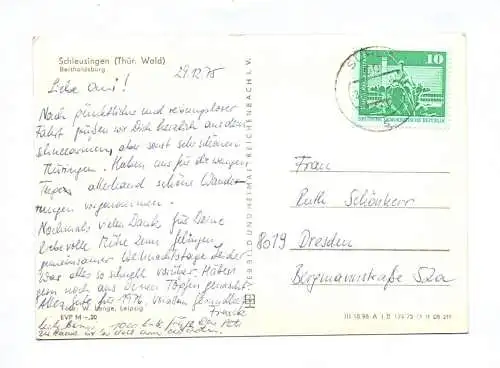 Schleusingen (Thür. Wald)
Bertholdsburg
29.12.75
Liebe Omi!
Nach pünktlicher und reibungsloser
Fahrt grüßen wir Dich herzlich aus dem
schneearmen, aber sonst sehr schönen
Thüringen. Haben uns für die wenigen
Tage allerhand schöne Wande-
rungen vorgenommen.
Nochmals vielen Dank für Deine
liebevolle Mühe zum
gemeinsamer Weihnachtstage
War alles so schnell vorüber. Hätten
gern noch aus Deinen Töpfen genascht.
Alles Gute für 1976,
Foto: W. Lange, Leipzig
EVP M -,20
VERB BILD UND HEIMAT REICHENBACH I. V.
10
DEUTSCHE DEMOKRATISCHE REPUBLIK
Frau
Ruth Schönherr
8019 Dresden
Bergmannstraße 52a